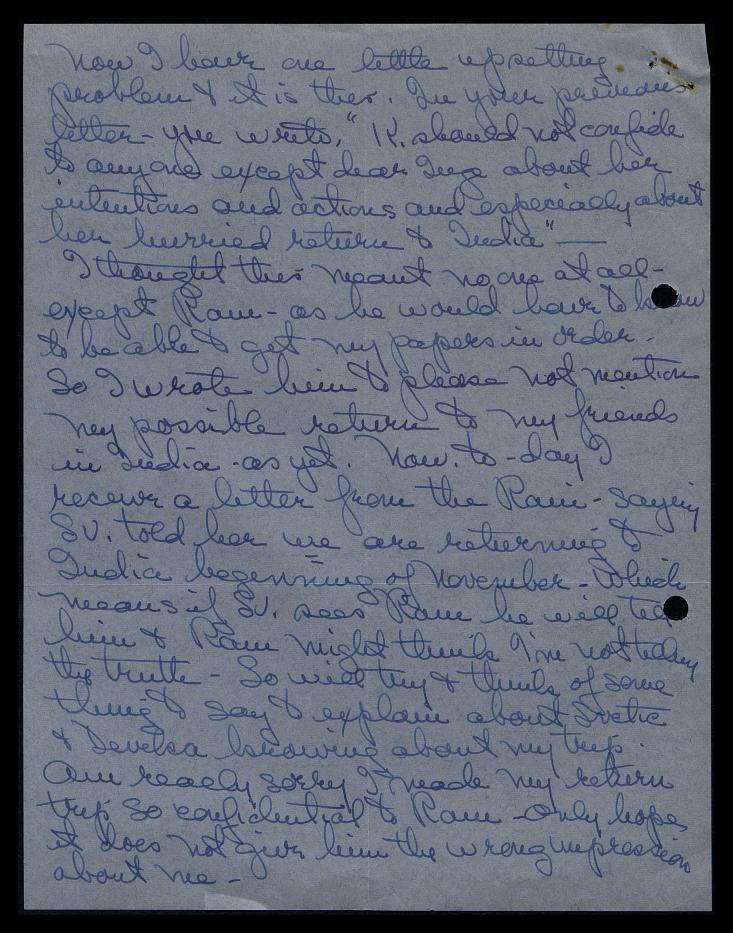 Now I have one little upsetting
problem & it is this. In your previous
letter - you wrote, "K. should not confide
to anyone except dear Inge about her
intentions and actions and especially about
her hurried return to India" —
I thought this meant no one at all -
except Ram - as he would have to know
to be able to get my papers in order.
So I wrote him to please not mention
my possible return to my friends
in India - as yet. Now. to-day I
receive a letter from the Rani - saying
Sv. told her we are returning to
India beginning of November - Which
means if Sv. sees Ram he will tell
him & Ram might think I'm not telling
the truth - So will try & think of some
thing to say to explain about Svetic
& Devika knowing about my trip.
Am really sorry I made my return
trip so confidential to Ram - only hope
it does not give him the wrong impression
about me -